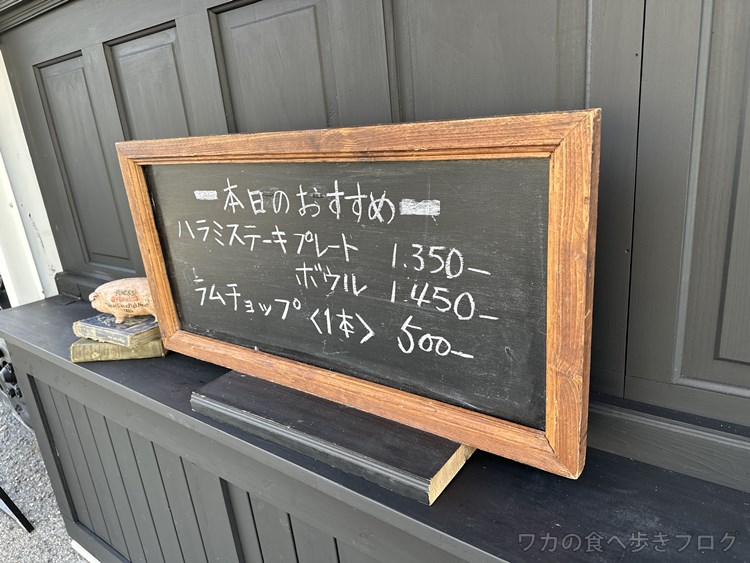 本日のおすすめ
ハラミステーキプレート 1.350-
ボウル 1.450-
ラムチョップ〈1本〉 500-
ワカの食べ歩きブログ